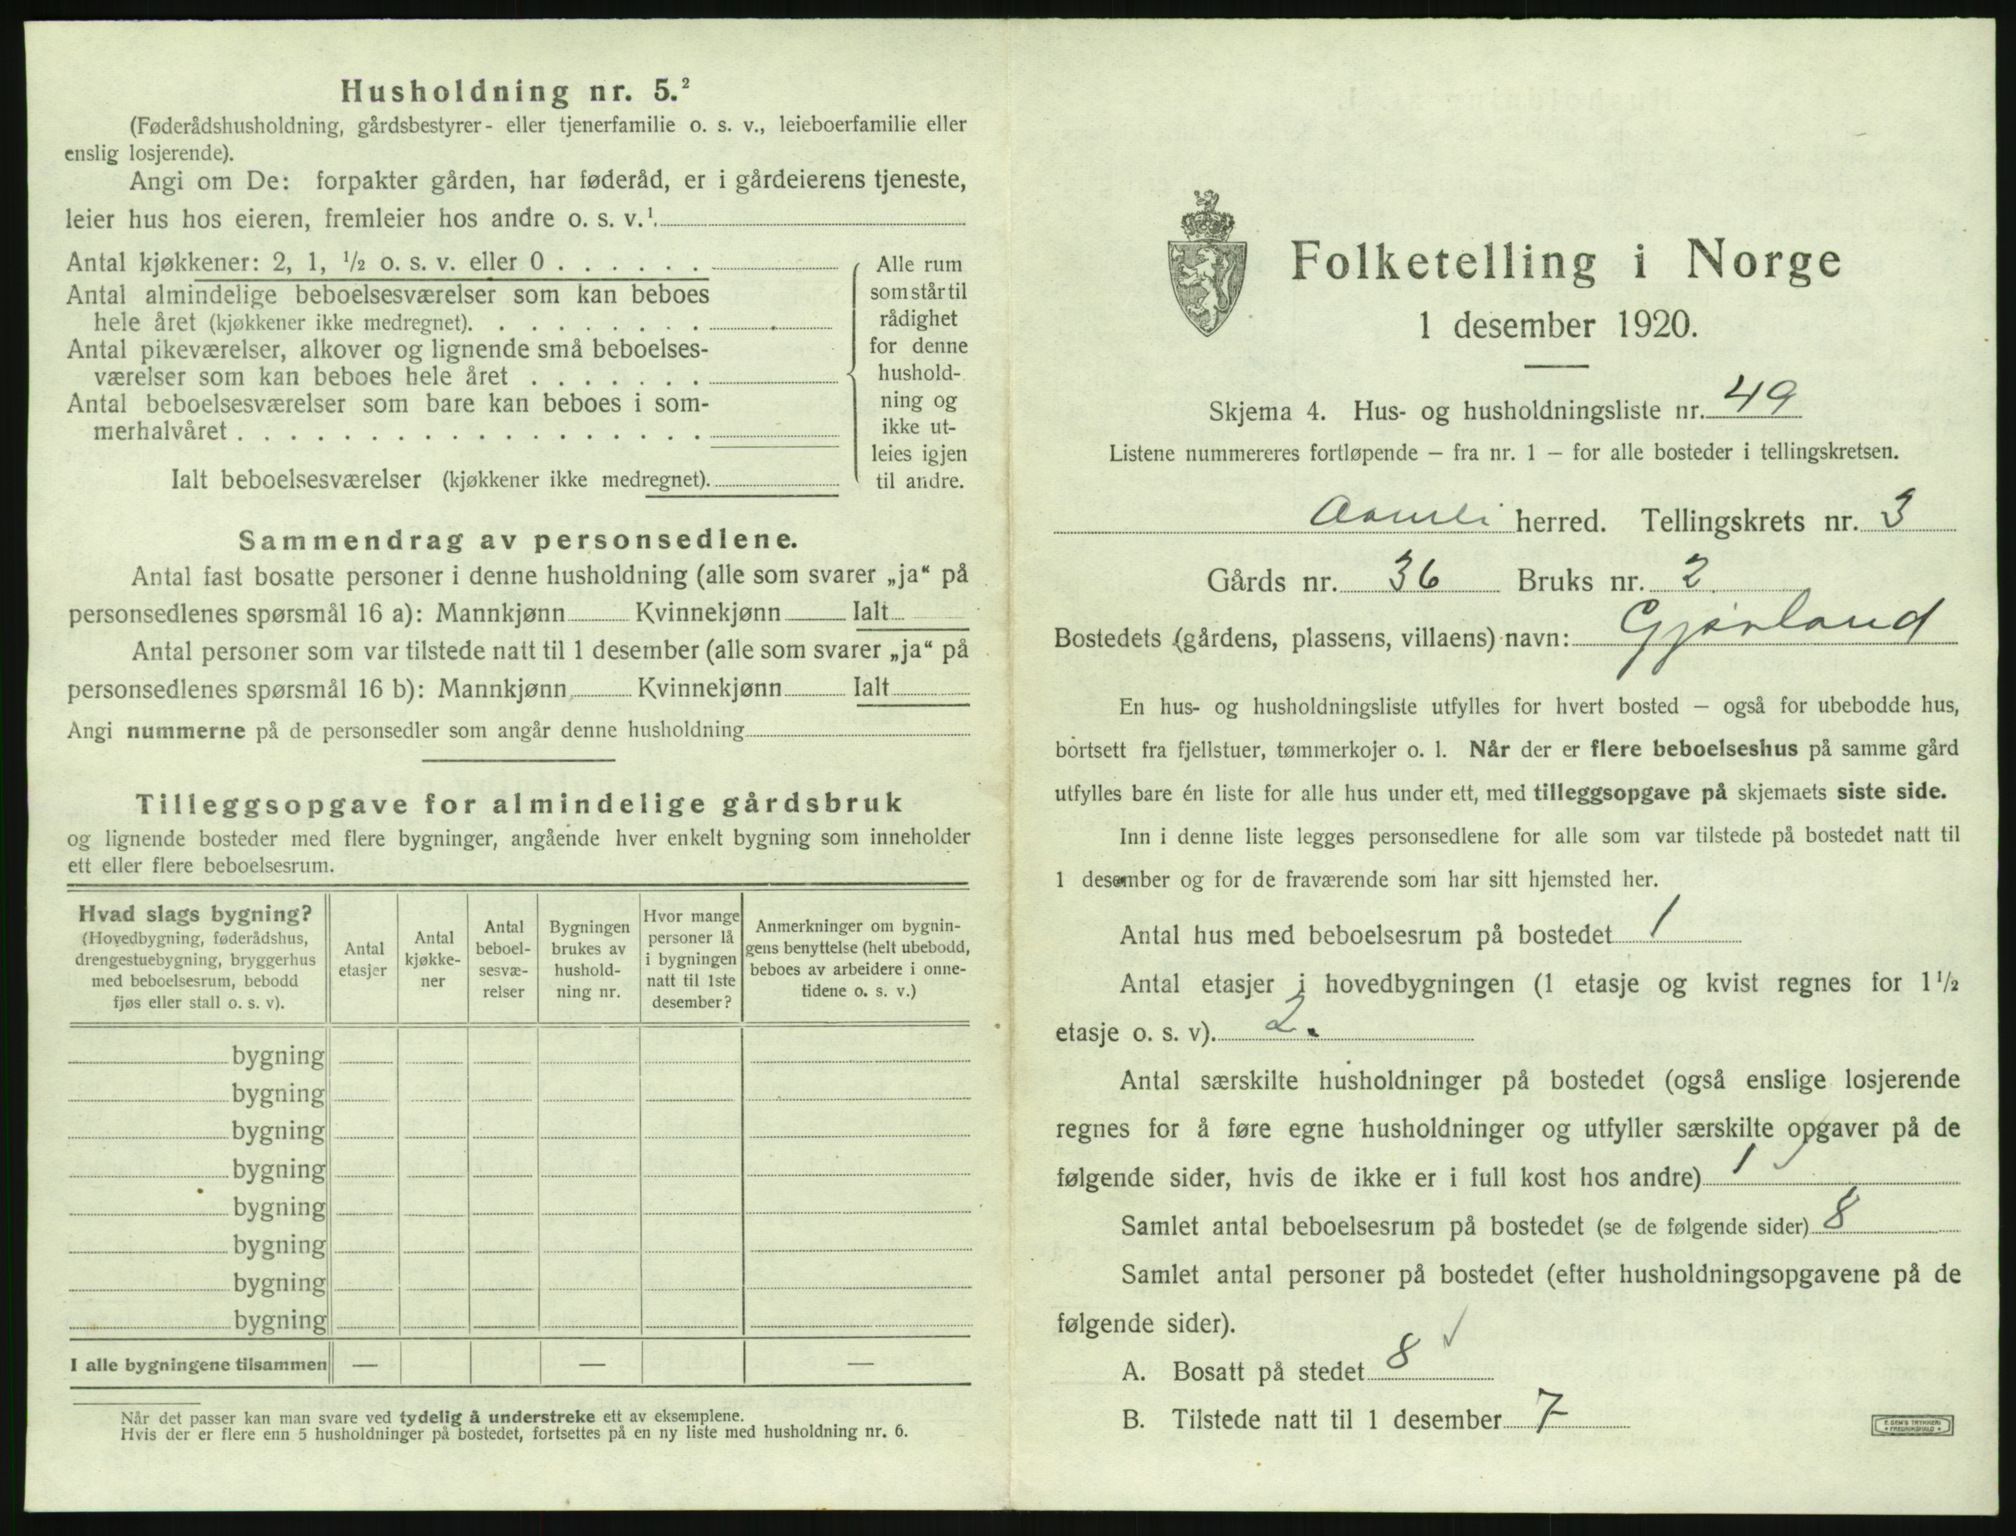 Husholdning nr. 5.²
(Føderådshusholdning, gårdsbestyrer- eller tjenerfamilie o. s. v., leieboerfamilie eller
enslig losjerende).
Angi om De: forpakter gården, har føderåd, er i gårdeierens tjeneste,
leier hus hos eieren, fremleier hos andre o. s. v.¹
Antal kjøkkener: 2, 1, ½ o. s. v. eller 0 . . . . . .
Antal almindelige beboelsesværelser som kan beboes
hele året (kjøkkener ikke medregnet). . . . . . . . .
Antal pikeværelser, alkover og lignende små beboelses-
værelser som kan beboes hele året . . . . . . .
Antal beboelsesværelser som bare kan beboes i som-
merhalvåret . . . . . . . . . . . . . . . . . .
Ialt beboelsesværelser (kjøkkener ikke medregnet).
Alle rum
som står til
rådighet
for denne
hushold-
ning og
ikke ut-
leies igjen
til andre.
Sammendrag av personsedlene.
Antal fast bosatte personer i denne husholdning (alle som svarer „ja“ på
personsedlenes spørsmål 16 a): Mannkjønn Kvinnekjønn Ialt
Antal personer som var tilstede natt til 1 desember (alle som svarer „ja“ på
personsedlenes spørsmål 16 b): Mannkjønn Kvinnekjønn Ialt
Angi nummerne på de personsedler som angår denne husholdning
Tilleggsopgave for almindelige gårdsbruk
og lignende bosteder med flere bygninger, angående hver enkelt bygning som inneholder
ett eller flere beboelsesrum.
Hvad slags bygning?
(Hovedbygning, føderådshus,
drengestuebygning, bryggerhus
med beboelsesrum, bebodd
fjøs eller stall o. s. v).
Antal
etasjer
Antal
kjøkke-
ner
Antal
beboel-
sesvæ-
relser
Bygningen
brukes av
hushold-
ning nr.
Hvor mange
personer lå
i bygningen
natt til 1ste
desember?
Anmerkninger om bygnin-
gens benyttelse (helt ubebodd,
beboes av arbeidere i onne-
tidene o. s. v.)
bygning
bygning
bygning
bygning
bygning
bygning
bygning
bygning
I alle bygningene tilsammen — — —
Når det passer kan man svare ved tydelig å understreke ett av eksemplene.
Hvis der er flere enn 5 husholdninger på bostedet, fortsettes på en ny liste med husholdning nr. 6.
Folketelling i Norge
1 desember 1920.
Skjema 4. Hus- og husholdningsliste nr. 49
Listene nummereres fortløpende – fra nr. 1 – for alle bosteder i tellingskretsen.
Aamli herred. Tellingskrets nr. 3
Gårds nr. 36 Bruks nr. 2
Bostedets (gårdens, plassens, villaens) navn: Gjøvland
En hus- og husholdningsliste utfylles for hvert bosted – også for ubebodde hus,
bortsett fra fjellstuer, tømmerkojer o. l. Når der er flere beboelseshus på samme gård
utfylles bare én liste for alle hus under ett, med tilleggsopgave på skjemaets siste side.
Inn i denne liste legges personsedlene for alle som var tilstede på bostedet natt til
1 desember og for de fraværende som har sitt hjemsted her.
Antal hus med beboelsesrum på bostedet 1
Antal etasjer i hovedbygningen (1 etasje og kvist regnes for 1½
etasje o. s. v). 2.
Antal særskilte husholdninger på bostedet (også enslige losjerende
regnes for å føre egne husholdninger og utfyller særskilte opgaver på de
følgende sider, hvis de ikke er i full kost hos andre) 1 ✓
Samlet antal beboelsesrum på bostedet (se de følgende sider) 8
Samlet antal personer på bostedet (efter husholdningsopgavene på de
følgende sider).
A. Bosatt på stedet 8 ✓
B. Tilstede natt til 1 desember 7
E. SEM'S TRYKKERI
FREDRIKSHALD